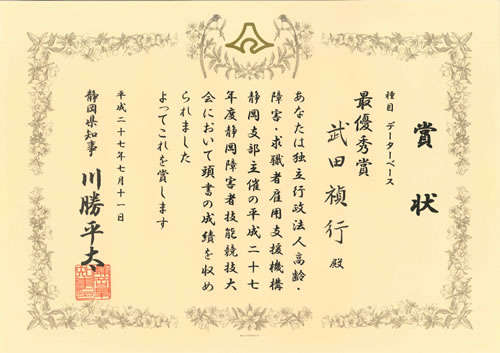 賞状
種目 データーベース
最優秀賞
武田禎行 殿
あなたは独立行政法人高齢・
障害・求職者雇用支援機構
静岡支部主催の平成二十七
年度静岡障害者技能競技大
会において頭書の成績を収め
られました
よってこれを賞します
平成二十七年七月十一日
静岡県知事 川勝平太